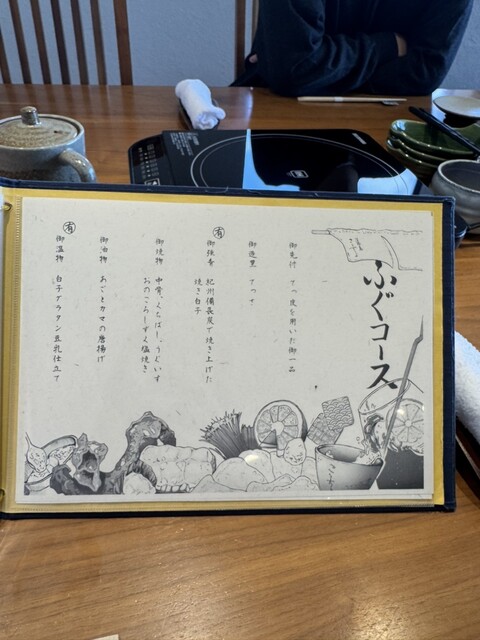 ふぐコース
御先付 てっ皮を用いた御一品
御造里 てっさ
㊒
御強肴 紀州備長炭で焼き上げた
焼き白子
御焼物 中骨、くちばし、うぐいす
おのころしずく塩焼き
御油物 あごとカマの唐揚げ
㊒
御温物 白子グラタン豆乳仕立て